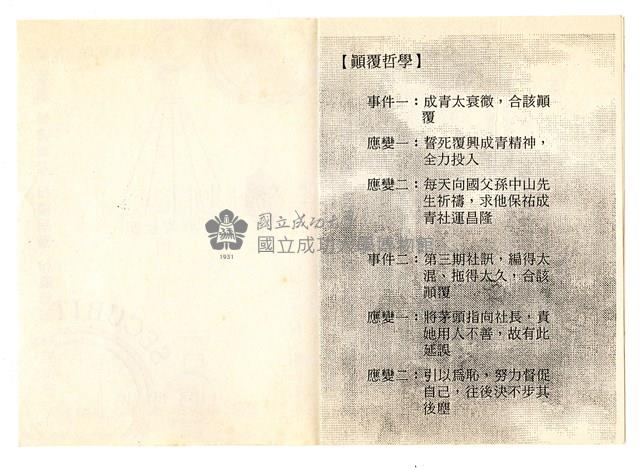 【顚覆哲學】
事件一：成青太衰微，合該顚
覆
應變一：誓死覆興成青精神，
全力投入
應變二：每天向國父孫中山先
生祈禱，求他保祐成
青社運昌隆
事件二：第三期社訊，編得太
混、拖得太久，合該
顚覆
應變一：將茅頭指向社長，責
她用人不善，故有此
延誤
應變二：引以爲恥，努力督促
自己，往後決不步其
後塵
國立成功大學
國立成功大學博物館
1931
SECURIT